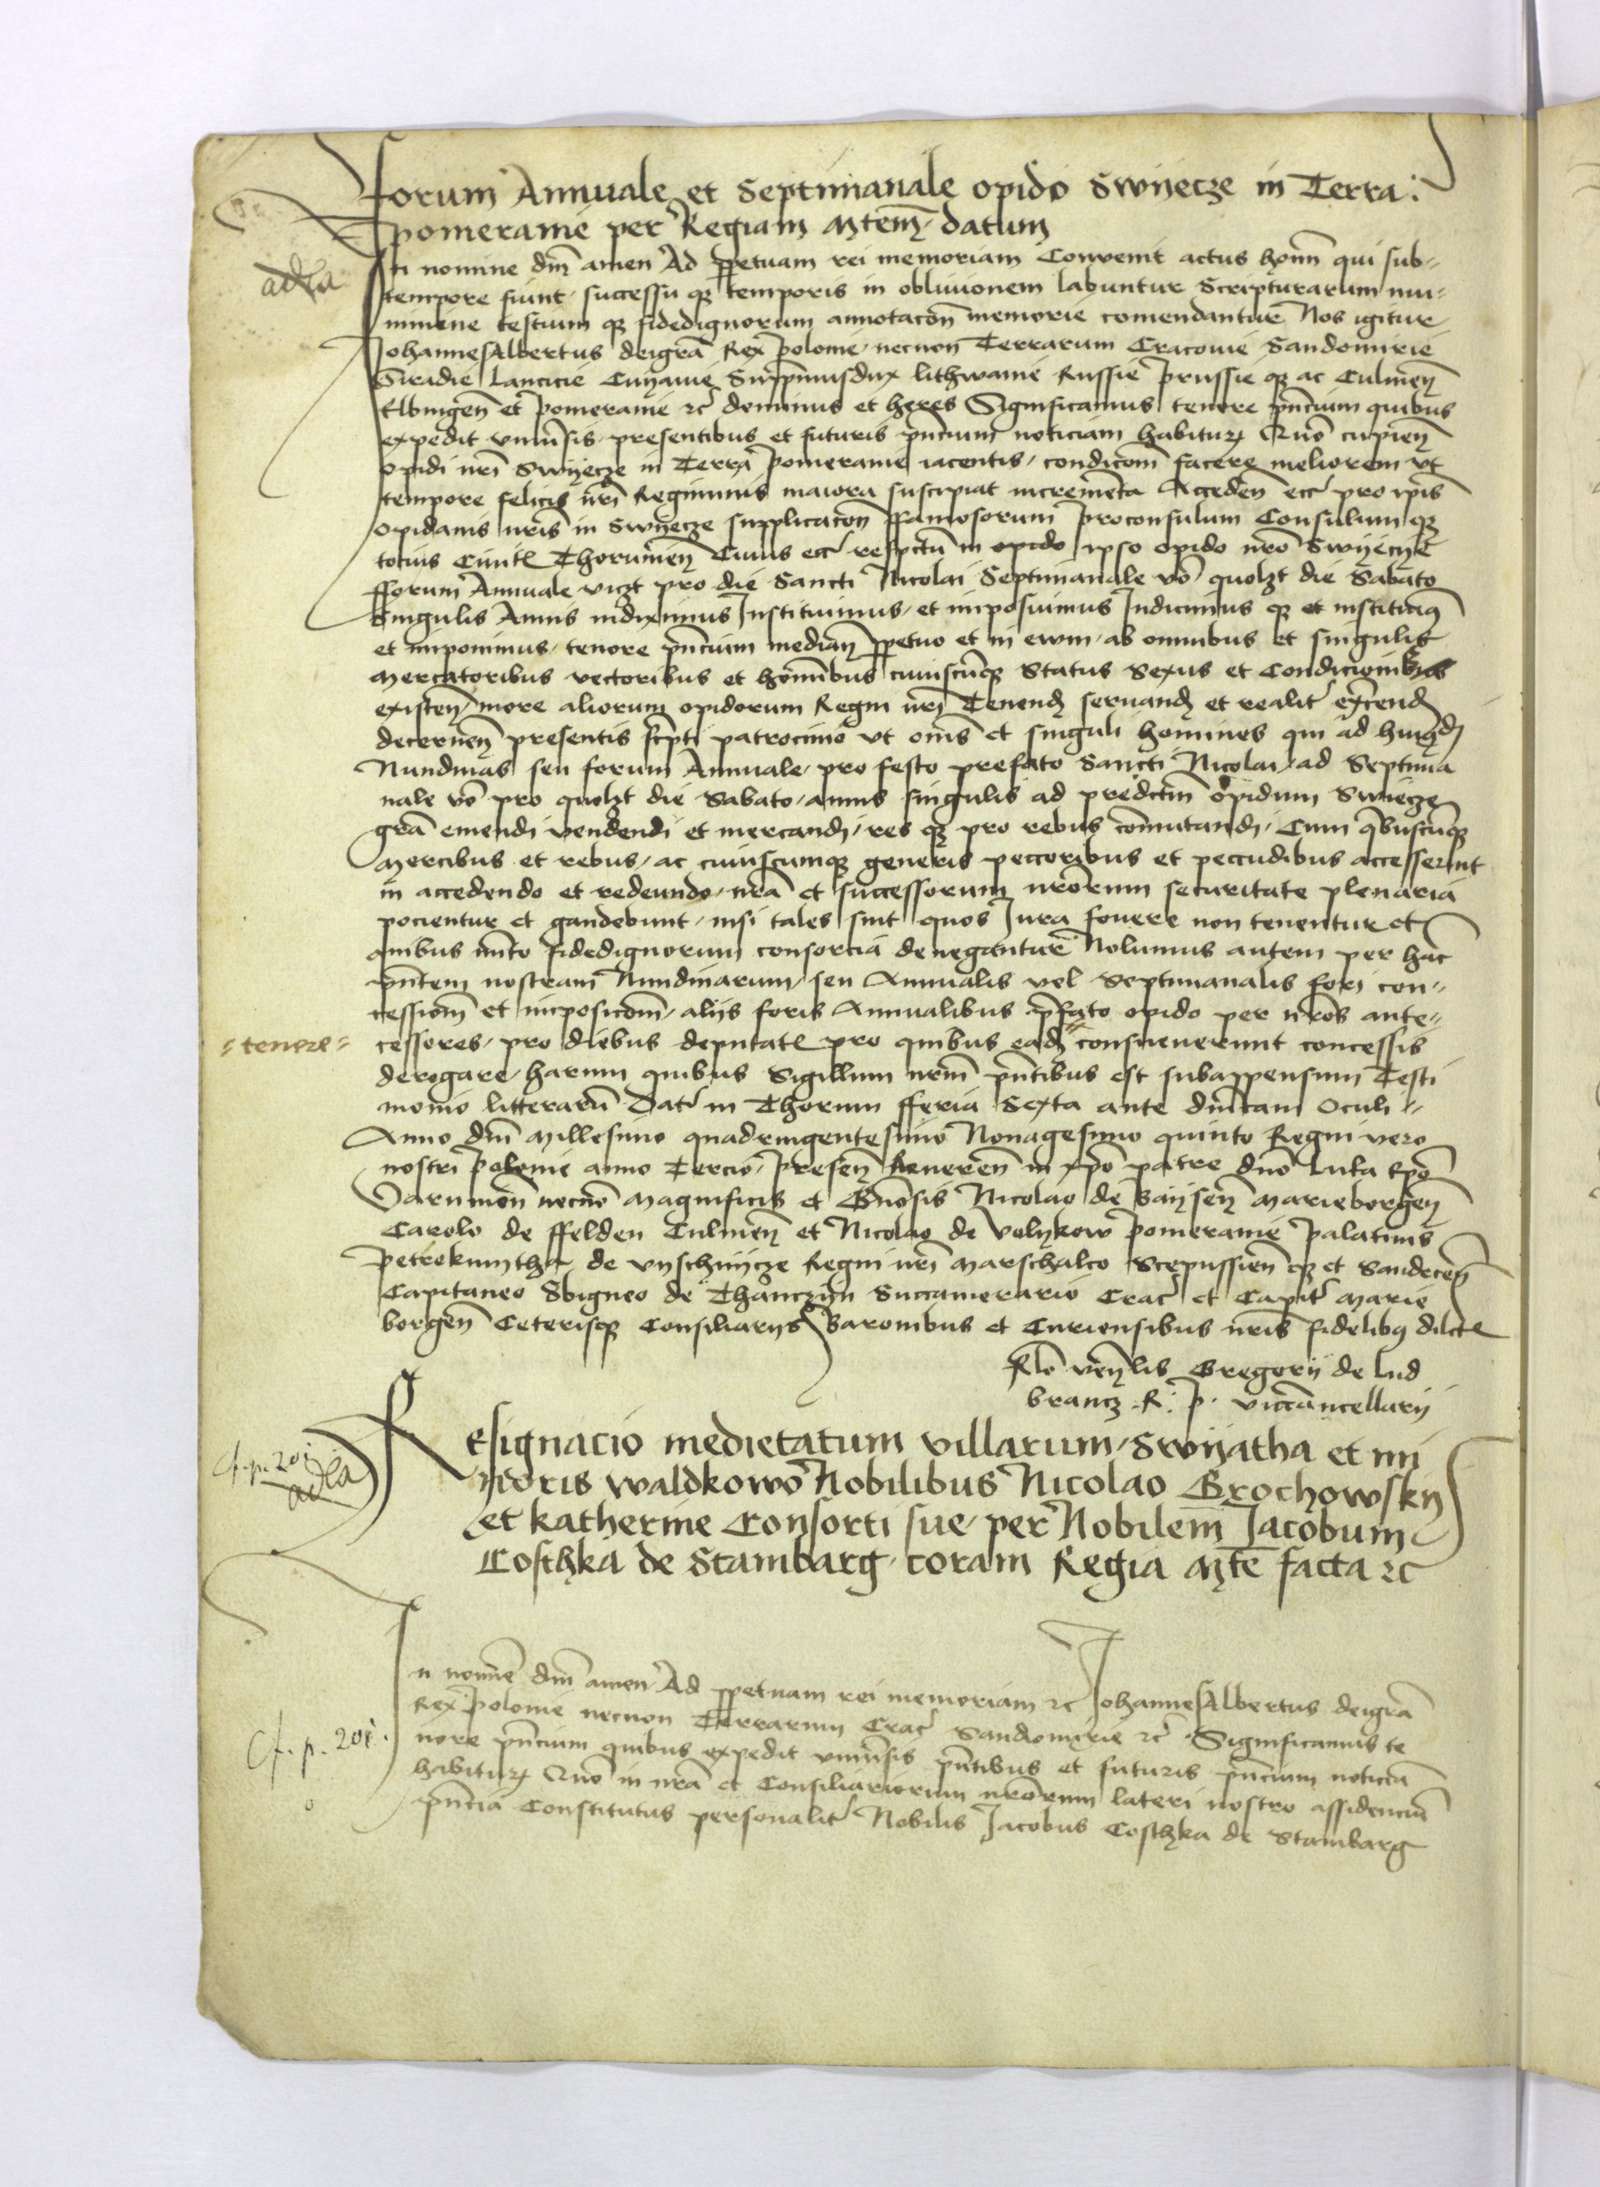 Forum Annuale et Septimanale opido Swyecze in Terra
pomeranie per Regiam Mtem datum
adla
In nomine dni amen Ad ppetuam rei memoriam Convenit actus homn qui sub-
tempore fiunt successu qz temporis in oblivionem labuntur Scripturarum mu-
nimine testium qz fidedignorum annotacon memorie comendantur Nos igitur
Johannes Albertus deigra Rex polonie necnon Terrarum Cracovie Sandomirie
Siradie Lancicie Cuyavie Suppremusdux lithwanie Russie prussie qz ac Culmen
Elbingen et pomeranie zc dominus et heres Significamus tenore pncium quibus
expedit univsis presentibus et futuris pncium noticiam habitur Quo cupien
opidi nri Swyecze in Terra pomeranie iacentis condicom facere meliorem ut
tempore felicis nri Regiminis maiora suscipiat incrementa Acceden ecc pro ipis
opidanis nris in Swyecze supplicacon ffamosorum proconsulum Consulum qz
tocius Civit Thorunien Cuius ecc respctu in opido ipso opido nro Swyecze
fforum Annuale vizt pro die Sancti Nicolai Septimanale vo quolzt die Sabato
Singulis Annis indiximus Instituimus et imposuimus Indicimus qz et instituimus
et imponimus tenore pncium median ppetuo et in evum ab omnibus et singulis
mercatoribus vectoribus et hominibus cuiuscunqz Status Sexus et Condicionibus
existen more aliorum opidorum Regni nri Tenend servand et realit excend
decernen presentis scpti patrocinio ut omes et singuli homines qui ad huiusd
Nundinas seu forum Annuale pro festo prefato Sancti Nicolai ad Septima
nale vo pro quolzt die Sabato annis singulis ad predictm opidum Swiecze
gra emendi vendendi et mercandi res qz pro rebus comutandi Cum qbuscunqz
mercibus et rebus ac cuiuscumqz generis peccoribus et peccudibus accesserint
in accedendo et redeundo nra et successorum nrorum securitate plenaria
pocientur et gaudebunt nisi tales sint quos Jura fovere non tenentur et
quibus mito fidedignorum consorcia denegantur Nolumus autem per hac
pntem nostram Nundinarum seu Annualis vel Septimanalis fori con-
cessiom et imposicom aliis foris Annualibus pfato opido per nros ante-
=tenere= cessores pro diebus deputat pro quibus ead consueverunt concessis
derogare harum quibus Sigillum nrm pntibus est subappensum Testi
monio litterarum Dat in Thorun fferia Sexta ante dnicam Oculi
Anno dni millesimo quadringentesimo Nonagesimo quinto Regni vero
nostri polonie anno Tercio presen Reveren in xpo patre dno Luca Epo
Varmien necno magnificis et Gnosis Nicolao de Baysen marieborgen
Carolo de ffelden Culmen et Nicolao de Volykow pomeranie palatinis
petrokumtha de vyschnijcze Regni nri marschalco Scepussien qz et Sandecen
Capitaneo Sbigneo de Thanczin Succamerario Crac et Capit marie
borgen Ceterisqz Consiliariis Baronibus et Curiensibus nris fidelibus dilct
Rlo venlis Gregorii de Lud
brancz R. p. vicecancellarii
Cf. p. 201
adla
Resignacio medietatum villarum Swyatha et mi
noris waldkowo Nobilibus Nicolao Grochowsky
et katherine Consorti sue per Nobilem Jacobum
Costhka de Stambarg coram Regia Mte facta zc
In nomie dni amen Ad ppetuam rei memoriam zc Johannes Albertus deigra
Rex polonie necnon Terrarum Crac Sandomirie zc Significamus te
Cf. p. 201.
nore pncium quibus expedit univsis pntibus et futuris pncium noticia
habitur Quo in nra et Consiliariorum nrorum lateri nostro assidenciu
pncia Constitutus personalit Nobilis Jacobus Costhka de Stambarg